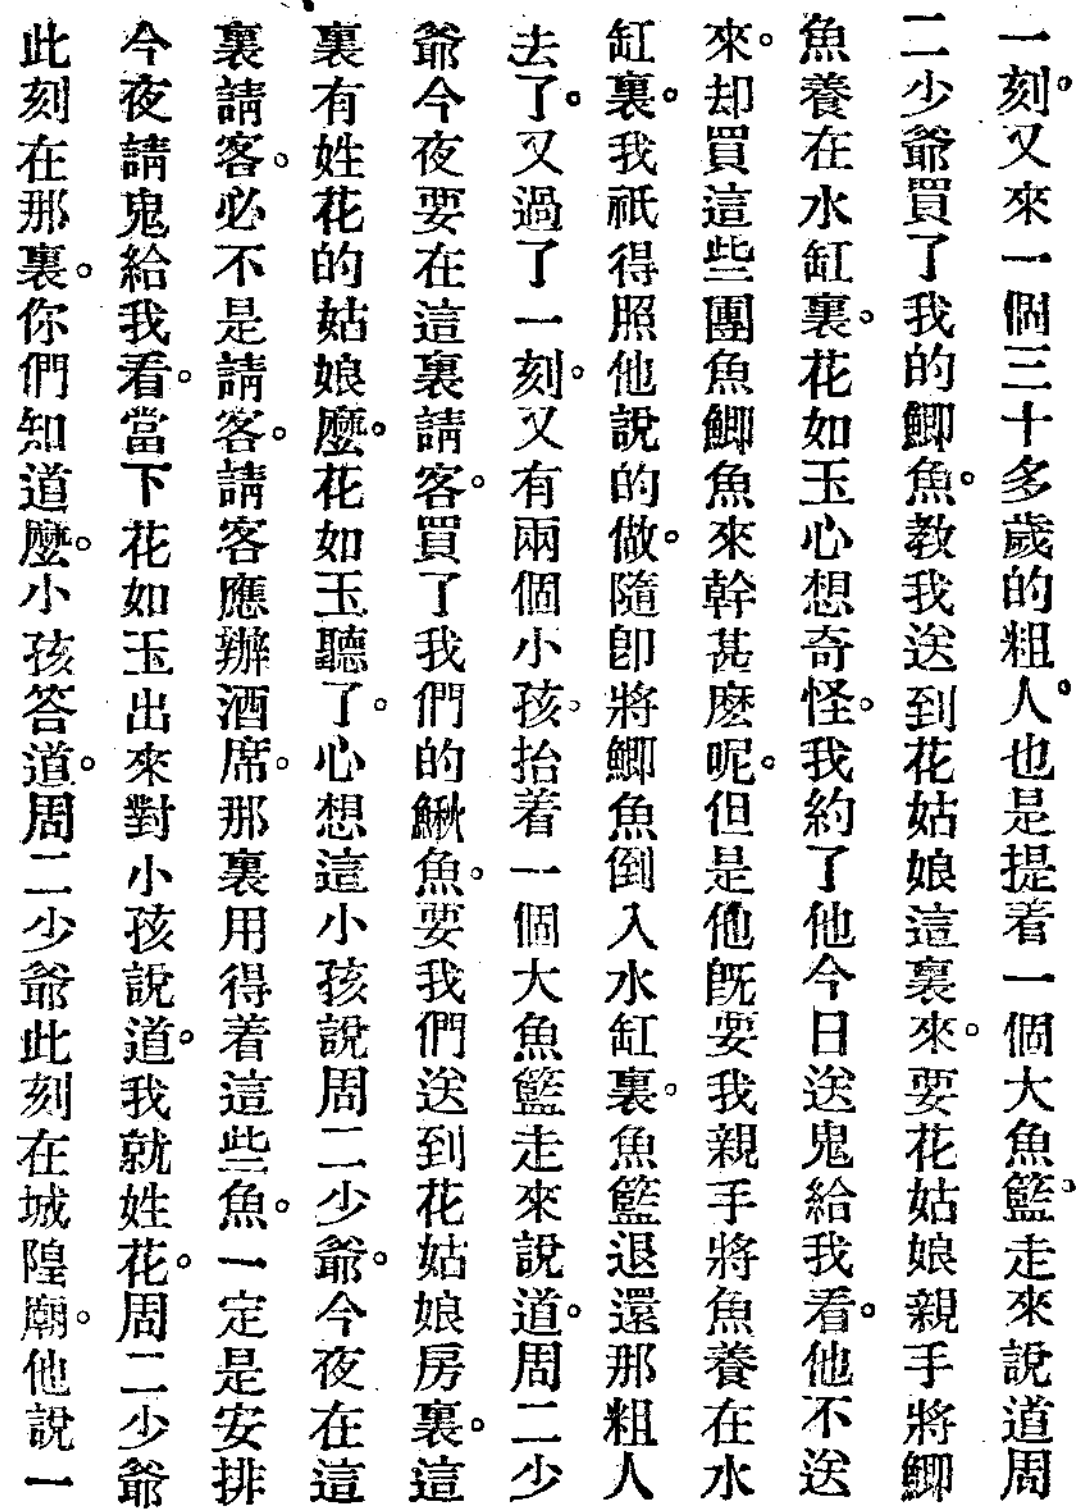 一刻。又來一個三十多歲的粗人。也是提着一個大魚籃。走來說道周
二少爺買了我的鯽魚。教我送到花姑娘這裏來。要花姑娘親手將鯽
魚養在水缸裏。花如玉心想奇怪。我約了他今日送鬼給我看。他不送
來。却買這些團魚鯽魚來幹甚麽呢。但是他旣要我親手將魚養在水
缸裏。我祇得照他說的做。隨卽將鯽魚倒入水缸裏。魚籃退還那粗人
去了。又過了一刻。又有兩個小孩。抬着一個大魚籃走來說道。周二少
爺今夜要在這裏請客。買了我們的鰍魚。要我們送到花姑娘房裏。這
裏有姓花的姑娘麽。花如玉聽了。心想這小孩說周二少爺。今夜在這
裏請客。必不是請客。請客應辦酒席。那裏用得着這些魚。一定是安排
今夜請鬼給我看。當下花如玉出來對小孩說道。我就姓花。周二少爺
此刻在那裏。你們知道麽。小孩答道。周二少爺此刻在城隍廟。他說一